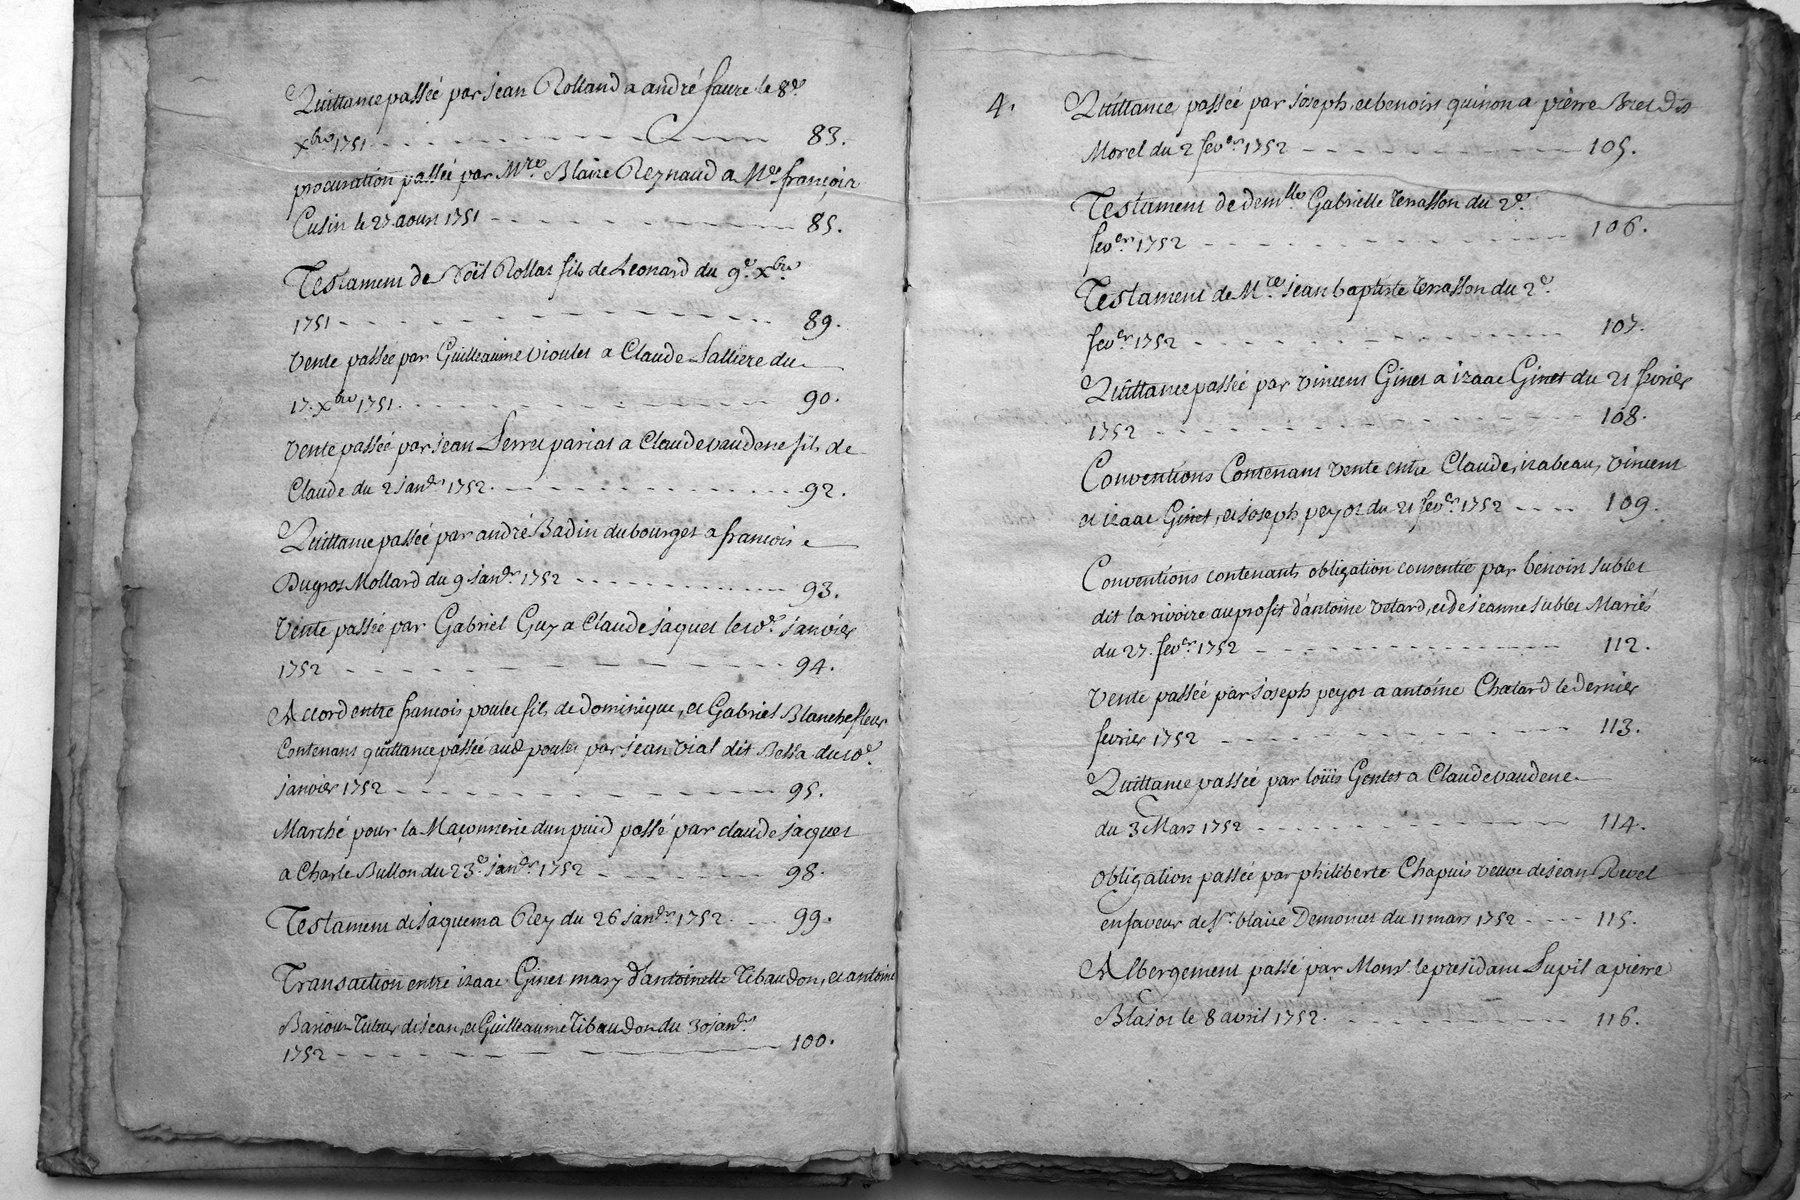 Quittance passée par Jean Rolland a andré faure le 8e
xbre 1751 83.
procuration passée par Mre Blaize Reynaud a Me françois
Cusin le 27 aoust 1751 85.
Testament de Noël Rollat fils de Leonard du 9e xbre
1751 89.
Vente passée par Guilleaume vioulet a Claude Sallière du
17. xbre 1751. 90.
Vente passée par Jean pariat a Claude vaudene fils de
Claude du 2 Janer 1752. 92.
Quittance passée par andré Badin du bourget a françoise
Dugros Mollard du 9 Janer 1752 93.
Vente passée par Gabriel Guy a Claude Jaquet le 10e Janvier
1752 94.
Accord entre françois poulet fils de dominique, et Gabriel Blanchefleur
Contenant quittance passée aud poulet par Jean vial dit Bessa du 10e
Janvier 1752 95.
Marché pour la Maçonnerie dun puid passé par claude Jaquet
a Charle Bullon du 23e Janer 1752 98.
Testament de Jaquema Rey du 26 Janer 1752. 99.
Transaction entre izaac Ginet mary d'antoinette Tibaudon, et antoine
Tuteur de Jean, et Guilleaume Tibaudon du 30 Janer
1752 100.
4. Quittance passée par Joseph, et benoist quinon a pierre Bret dit
Morel du 2 fever 1752 105.
Testament de demlle Gabrielle terrasson du 2e
fever 1752 106.
Testament de Mre Jean baptiste terrasson du 2e
fever 1752 107.
Quittance passée par vincent Ginet a izaac Ginet du 21 fevrier
1752 108.
Conventions Contenant vente entre Claude, izabeau, vincent
et izaac Ginet, et Joseph peyot du 21 fever 1752 109.
Conventions contenants obligation consentie par benoist Sublet
dit la rivoire au profit d'antoine vetard, et de Jeanne Sublet Mariés
du 27. fever 1752 112.
Vente passée par Joseph peyot a antoine Chatard le dernier
fevrier 1752 113.
Quittance passée par loüis Gentet a Claude vaudene
du 3 Mars 1752 114.
Obligation passée par philiberte Chapuis veuve de Jean Revel
en faveur de Sr blaize Demoniet du 11 mars 1752 115.
Albergement passé par Monsr le presidant Lupil a pierre
Blajot le 8 avril 1752. 116.